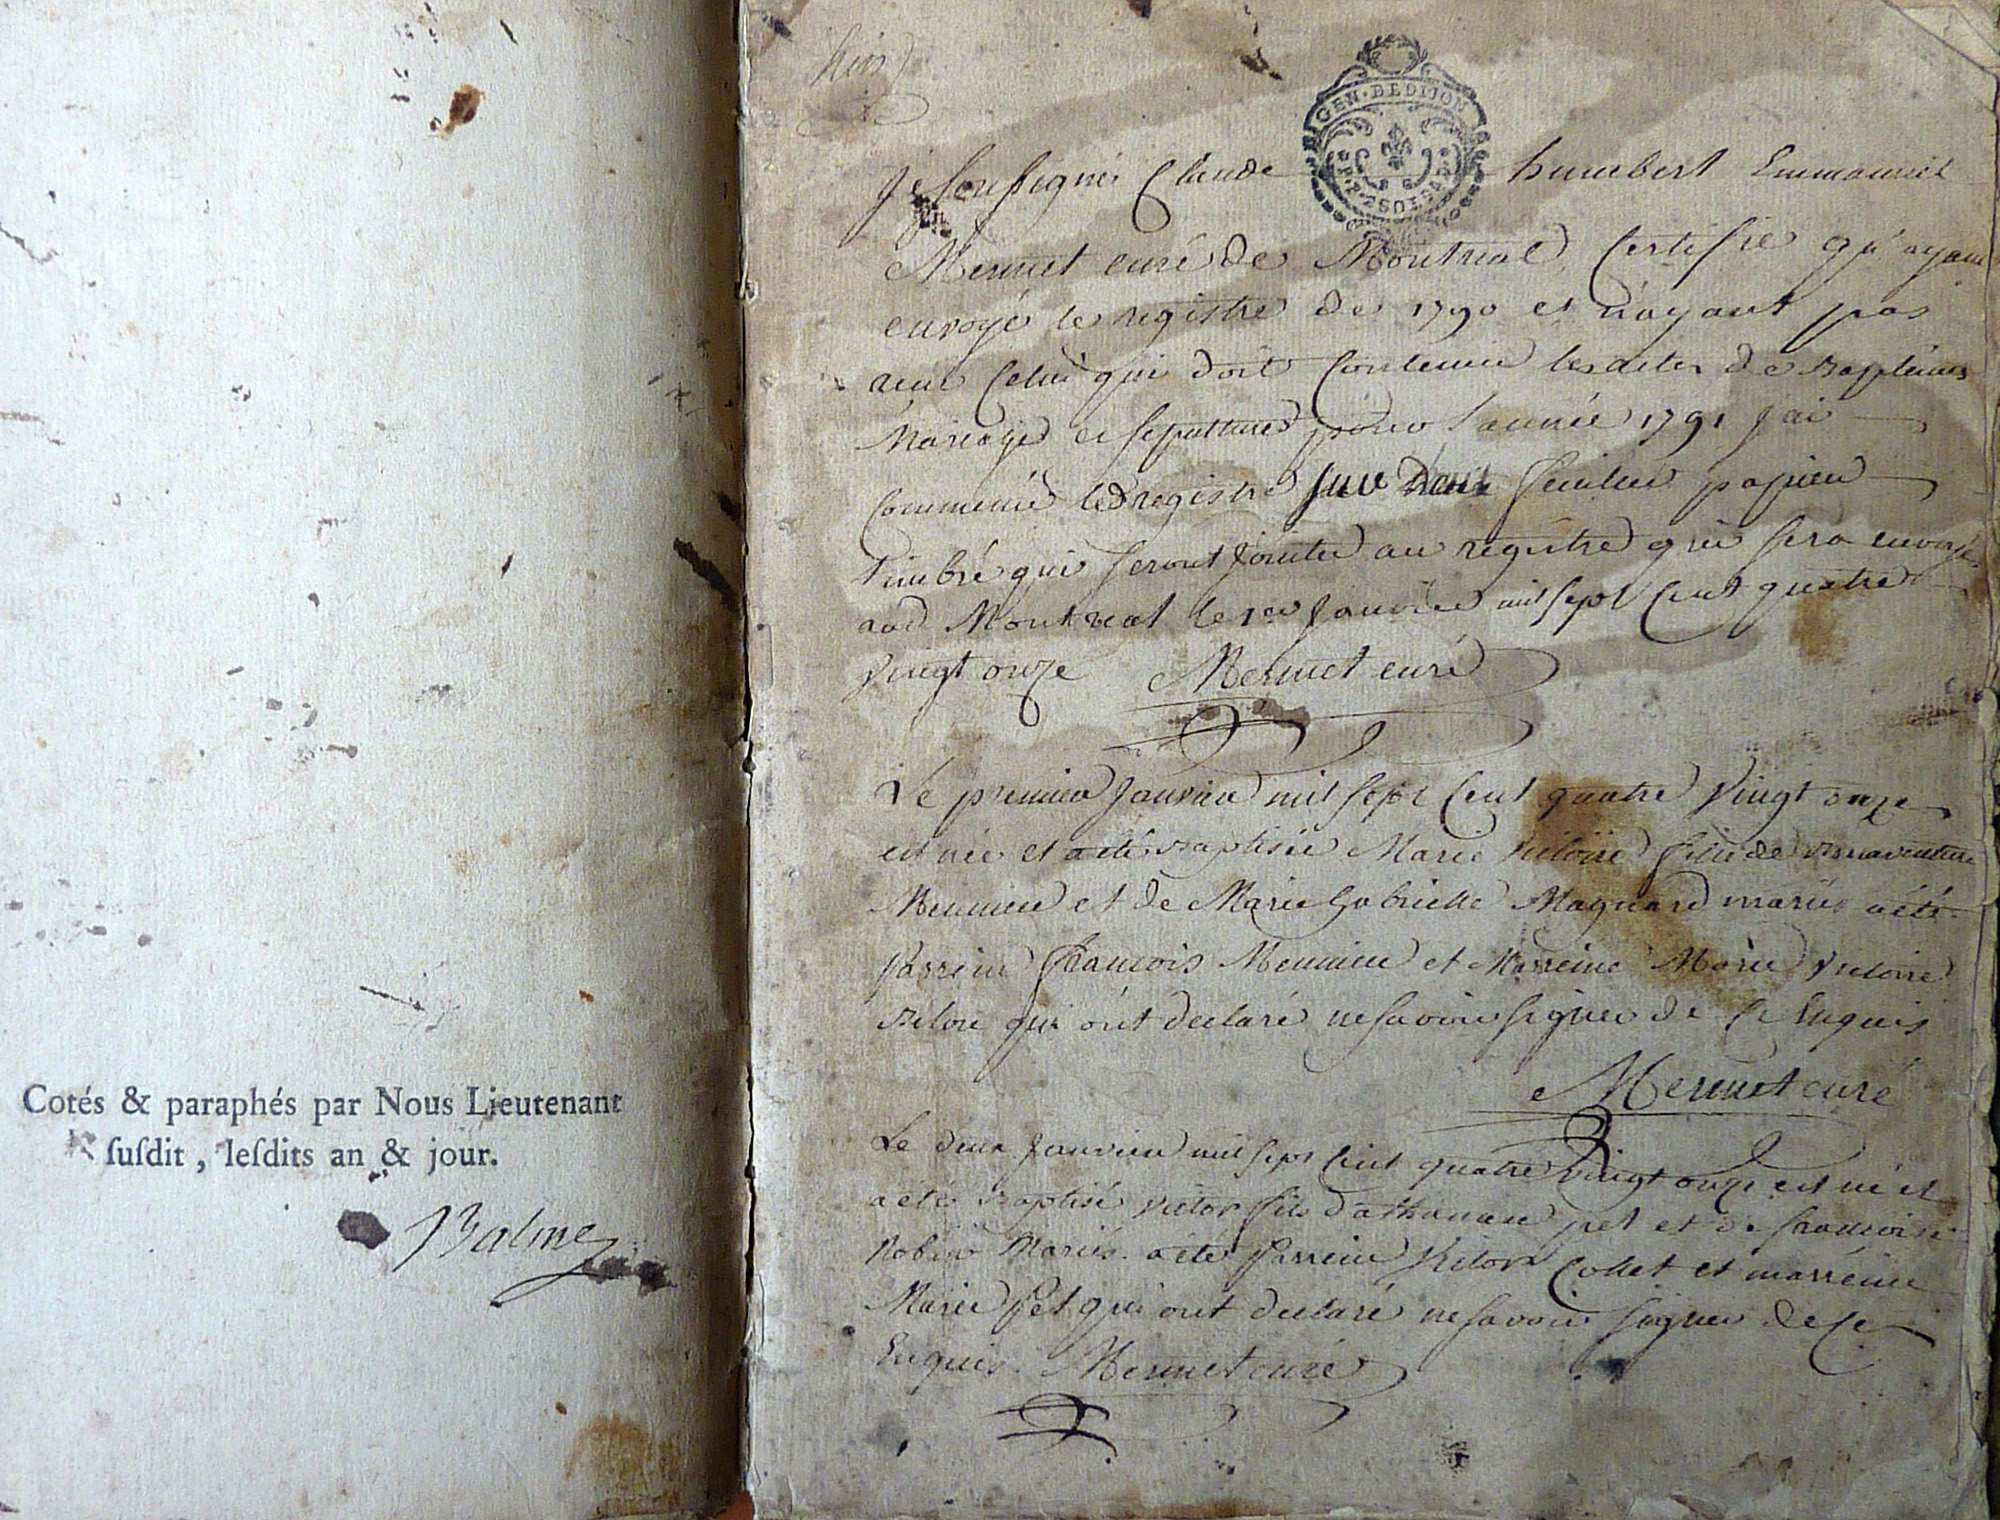 Cotés & paraphés par Nous Lieutenant
ſuſdit, leſdits an & jour.
Balme
GEN · DE DIJON
je soussigné Claude humbert Emmanuel
Mermet curé de Montreal certifie qu'ayant
envoyé le registre de 1790 et n'ayant pas
reçu celui qui doit contenir les actes de Baptêmes
Mariages et sepultures pour l'année 1791 j'ai
commencé led registre sur deux feuilles papier
timbré qui seront jointes au registre qui sera envoyé
aud Montreal le 1er Janvier mil sept cent quatre
vingt onze Mermet curé
Le premier Janvier mil sept cent quatre vingt onze
est née et a été Baptisée Marie Victoire fille de Bonaventure
Meunier et de Marie Gabrielle Magnard mariés a été
Parrein François Meunier et Marreine Marie Victoire
qui ont declaré ne savoir signer de ce Enquis
Mermet curé
Le deux Janvier mil sept cent quatre vingt onze est né et
a été Baptisé Victor fils d'athanase pet et de francoise
Robin Mariés. a été Parrein Victor Collet et marréine
Marie Pet qui ont declaré ne savoir signer de ce
Enquis. Mermet curé